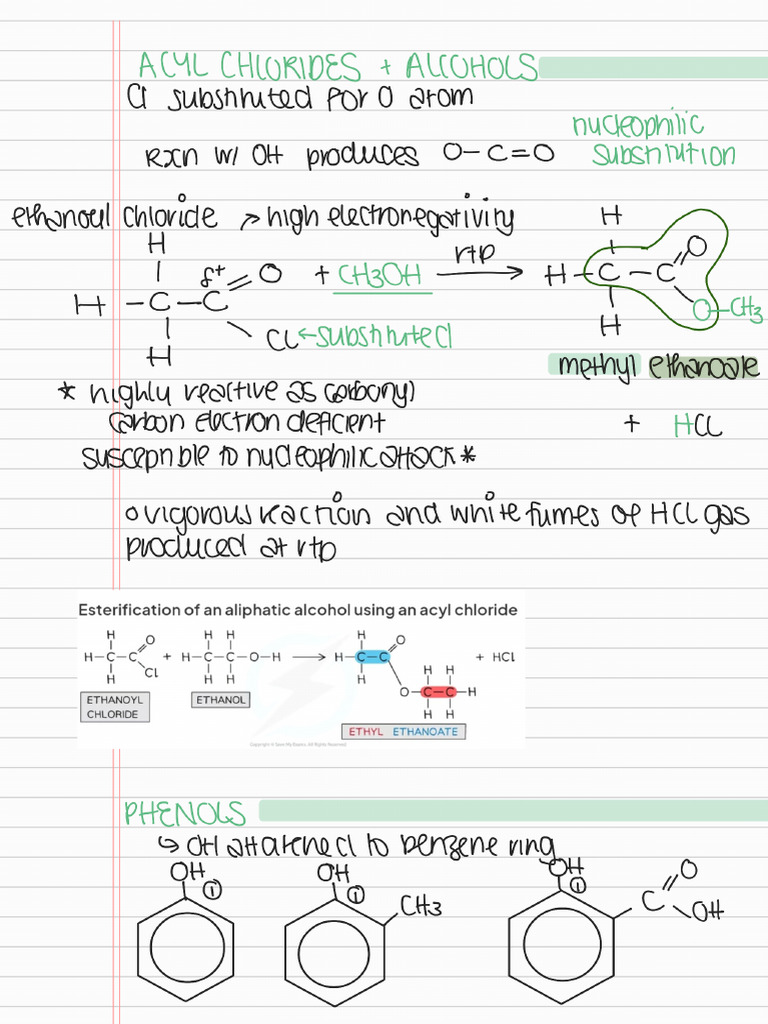 ACYL CHLORIDES + ALCOHOLS
Cl substituted for O atom
nucleophilic
substitution
Rxn w/ OH produces O-C=O
ethanoyl chloride > high electronegativity
H
H
rtp
δ+
O
+ CH3OH
O
H-C-C
H-C-C
Cl ← substituted
O-CH3
H
H
methyl ethanoate
* highly reactive as carbonyl
carbon electron deficient
+ HCl
susceptible to nucleophilic attack *
◦ vigorous reaction and white fumes of HCl gas
produced at rtp
Esterification of an aliphatic alcohol using an acyl chloride
H
O
H H
H
O
H-C-C
+ H-C-C-O-H → H-C-C
+ HCl
Cl
H
H H
H
H H
O-C-C-H
H H
ETHANOYL
CHLORIDE
ETHANOL
ETHYL ETHANOATE
Copyright © Save My Exams. All Rights Reserved
PHENOLS
↳ OH attached to benzene ring
OH
①
OH
①
CH3
OH
①
C
O
OH